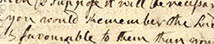 suppose it will be necessary
you would remember the
favourable to them than you